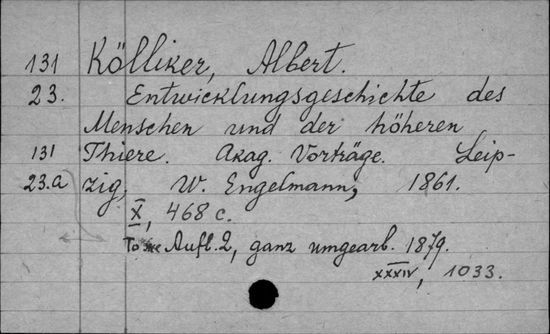 131 Kölliker, Albert.
23. Entwicklungsgeschichte des
Menschen und der höheren
131 Thiere. Akag. Vorträge. Leip-
23.a zig, W. Engelmann, 1861.
X, 468 c.
To же Aufl. 2, ganz umgearb. 1879.
XXXIV, 1033.